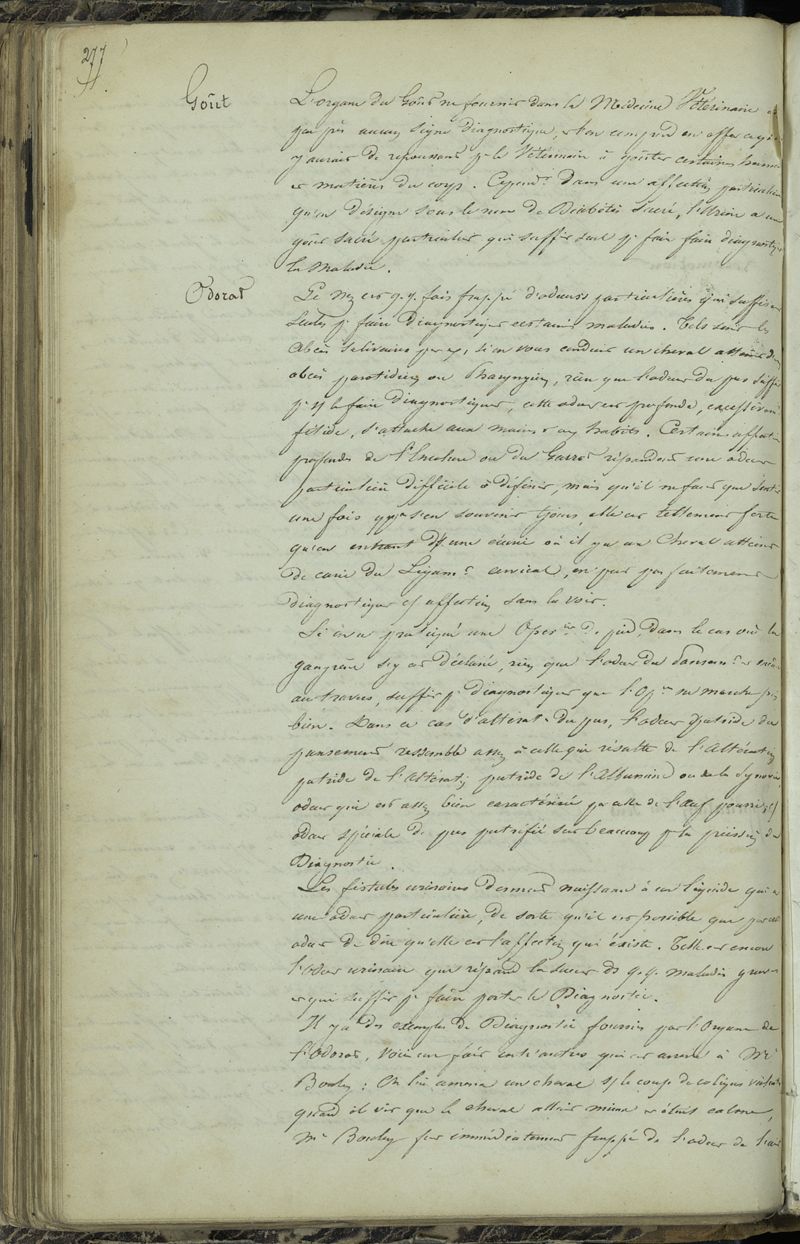 277
Goût
L'organe du Goût ne fournit dans la Médecine Vétérinaire
pas près aucun signe diagnostique, et on comprend en effet ce qu'il
y aurait de repoussant pr le Vétérinaire à goûter certaines humeurs
et matières du corps. Cependt dans une affection particulière
qu'on désigne sous le nom de Diabétès Sucré, l'Urine a un
goût sucré particulier qui suffit seul pr faire diagnostiquer
la Maladie.
Odorat
Le Nez est q.q. fois frappé d'odeurs particulières qui suffisent
seules pr faire diagnostiquer certaines maladies. Tels sont les
Abcès salivaires par ex, si on vous conduit un cheval atteint d'un
abcès parotidien ou Pharyngien, rien que l'odeur du pus suffit
pr le faire diagnostiquer, cette odeur est profonde, excessivemt
fétide, s'attache aux mains et aux habits. Certaines affections
profondes de l'Encolure ou du Garrot répandent une odeur
particulière difficile à définir, mais qu'il ne faut que sentir
une fois pr s'en souvenir tjours, elle est tellement forte
qu'en entrant ds une écurie où il y a un Cheval atteint
de carie du Ligamt cervical, on peut parfaitement
diagnostiquer cette affection sans la voir.
Si on a pratiqué une Opération de pied, dans le cas où la
gangrène s'y est déclarée, rien que l'odeur du pansemt
au travers, suffit pr diagnostiquer que l'Opon ne marche pas
bien. Dans ce cas d'altérat. du pus, l'odeur putride du
pansement ressemble assez à celle qui résulte de l'Altération
putride de l'altération putride de l'Albumine ou de la Synovie
odeur qui est assez bien caractérisée par celle de l'œuf pourri, cette
odeur spéciale de pus putréfié sert beaucoup pr la précision du
Diagnostic.
Les fistules urinaires donnent naissance à un liquide qui a
une odeur particulière, de sorte qu'il est possible que par cette
odeur de dire qu'elle est l'affection qui existe. Telle est encore
l'odeur urineuse que répand la sueur ds q.q. maladies graves
et qui suffit pr faire porter le Diagnostic.
Il y a des exemples de Diagnostic fournis par l'Organe de
l'Odorat, voici un fait entr'autres qui est arrivé à Mr
Bouley : On lui amena un cheval s/ le coup de coliques violentes
quand il vit que le cheval allait mieux et était calme,
Mr Bouley fut immédiatement frappé de l'odeur de l'air